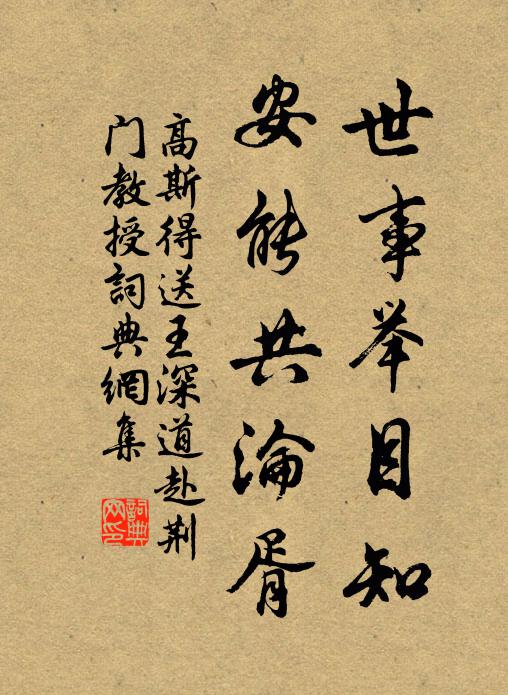 世事举目知
安能共淪胥
高斯得送王深道赴荆
门教授詞典網集
詞典网印